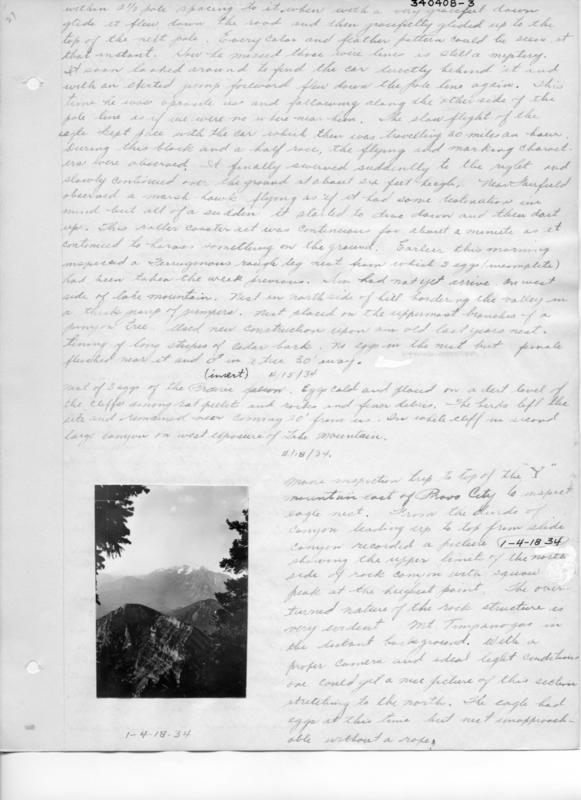 340408-3
within 2 1/2 pole spacing to it, when with a very graceful down
glide it flew down the road and then gracefully glided up to the
top of the next pole. Every color and feather pattern could be seen at
that instant. How he missed those wire lines is still a mystery.
It soon looked around to find the car directly behind it and
with an excited jump foreword flew down the pole line again. This
time he was opposite us and following along the other side of the
pole line as if we were no where near him. The slow flight of the
eagle kept pace with the car which then was travelling 30 miles an hour.
During this block and a half race, the flying and marking charact-
ers were observed. It finally swerved suddenly to the right and
slowly continued over the ground at about six feet heigth. Near Garfield
observed a marsh hawk flying as if it had some destination in
mind but all of a sudden it started to dive down and then dart
up. This roller coaster act was continuous for about a minute as it
continued to harass something on the ground. Earlier this morning
inspected a Ferrugenous rough leg nest from which 2 eggs (incomplete)
had been taken the week previous. had not yet arrive on west
side of lake mountain. Nest in north side of hill bordering the valley in
a thick group of junipers. Nest placed on the uppermost branches of a
pinyon tree. Used new construction upon an old last years nest.
Lining of long stripes of cedar bark. No eggs in the nest but female
flushed near it and in a tree 30' away.
(insert) 4/15/34
nest of 3 eggs of the Prairie falcon. Eggs cold and placed on a dirt level of
the cliffs among rat pellets and rocks and finer debris. The birds left the
site and remained near coming 10' from us. In white cliff in second
large canyon on west exposure of Lake Mountain.
4/18/34.
made inspection trip to top of the "Y"
mountain east of Provo City to inspect
eagle nest. From the divide of
canyon leading up to top from slide
canyon recorded a picture 1-4-18-34
showing the upper limit of the north
side of rock canyon with square
peak at the highest point. The over
turned nature of the rock structure is
very evident Mt Timpanogas in
the distant background. With a
proper camera and ideal light conditions
one could get a nice picture of this section
stretching to the north. The eagle had
eggs at this time but nest unapproach-
able without a rope.
1-4-18-34